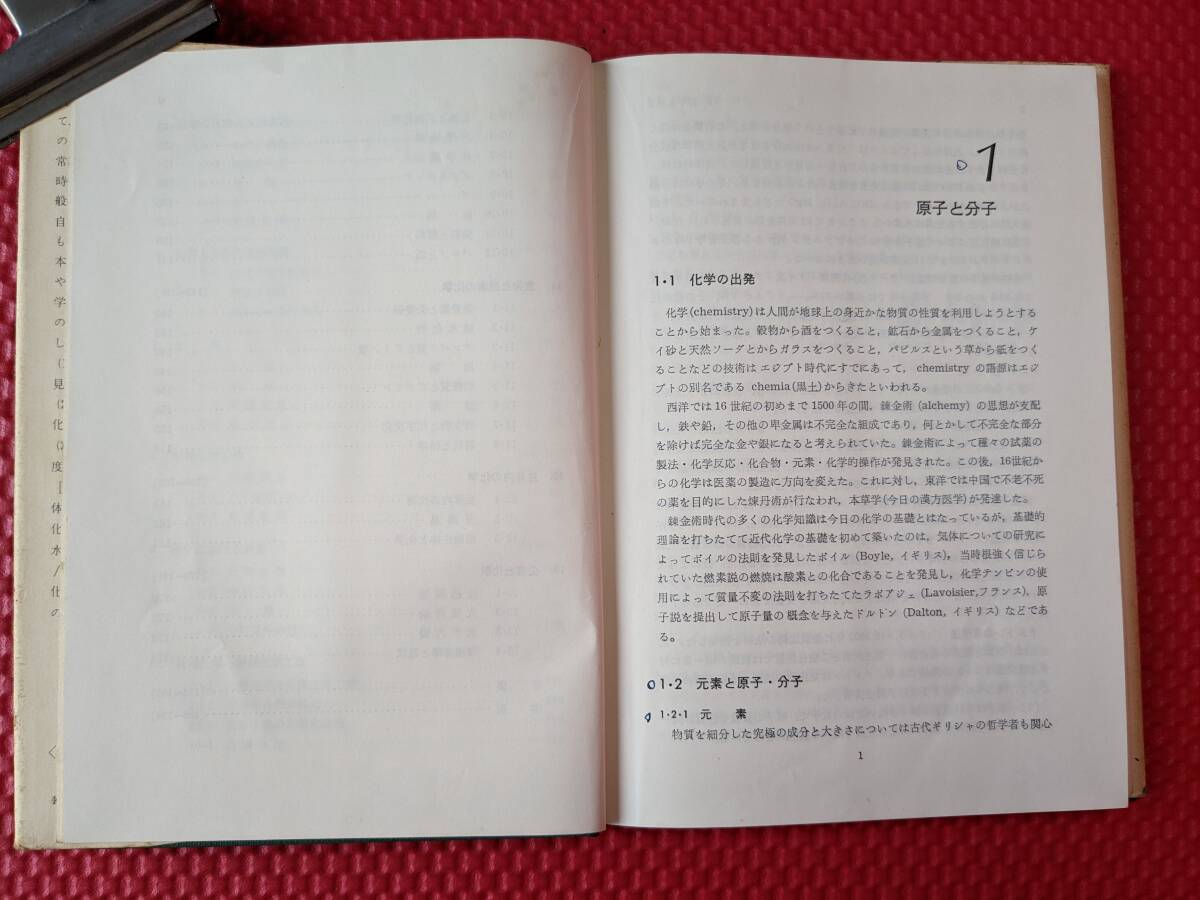 1
原子と分子
1・1 化学の出発
化学(chemistry)は人間が地球上の身近かな物質の性質を利用しようとする
ことから始まった。穀物から酒をつくること，鉱石から金属をつくること，ケ
イ砂と天然ソーダとからガラスをつくること，パピルスという草から紙をつく
ることなどの技術は エジプト時代にすでにあって， chemistry の語源はエジ
プトの別名である chemia(黒土)からきたといわれる。
西洋では16世紀の初めまで1500年の間，錬金術 (alchemy) の思想が支配
し，鉄や鉛，その他の卑金属は不完全な組成であり，何とかして不完全な部分
を除けば完全な金や銀になると考えられていた。錬金術によって種々の試薬の
製法・化学反応・化合物・元素・化学的操作が発見された。この後，16世紀か
らの化学は医薬の製造に方向を変えた。これに対し，東洋では中国で不老不死
の薬を目的にした煉丹術が行なわれ，本草学(今日の漢方医学)が発達した。
錬金術時代の多くの化学知識は今日の化学の基礎とはなっているが，基礎的
理論を打ちたてて近代化学の基礎を初めて築いたのは，気体についての研究に
よってボイルの法則を発見したボイル (Boyle, イギリス)，当時根強く信じら
れていた燃素説の燃焼は酸素との化合であることを発見し，化学テンビンの使
用によって質量不変の法則を打ちたてたラボアジェ (Lavoisier,フランス)，原
子説を提出して原子量の 概念を与えたドルトン (Dalton, イギリス) などであ
る。
1・2 元素と原子・分子
1・2・1 元 素
物質を細分した究極の成分と大きさについては古代ギリシャの哲学者も関心
1
て
の
常
時
般
自
も
本
や
学
の
し
見
は
化
度
体
化
水
化
の